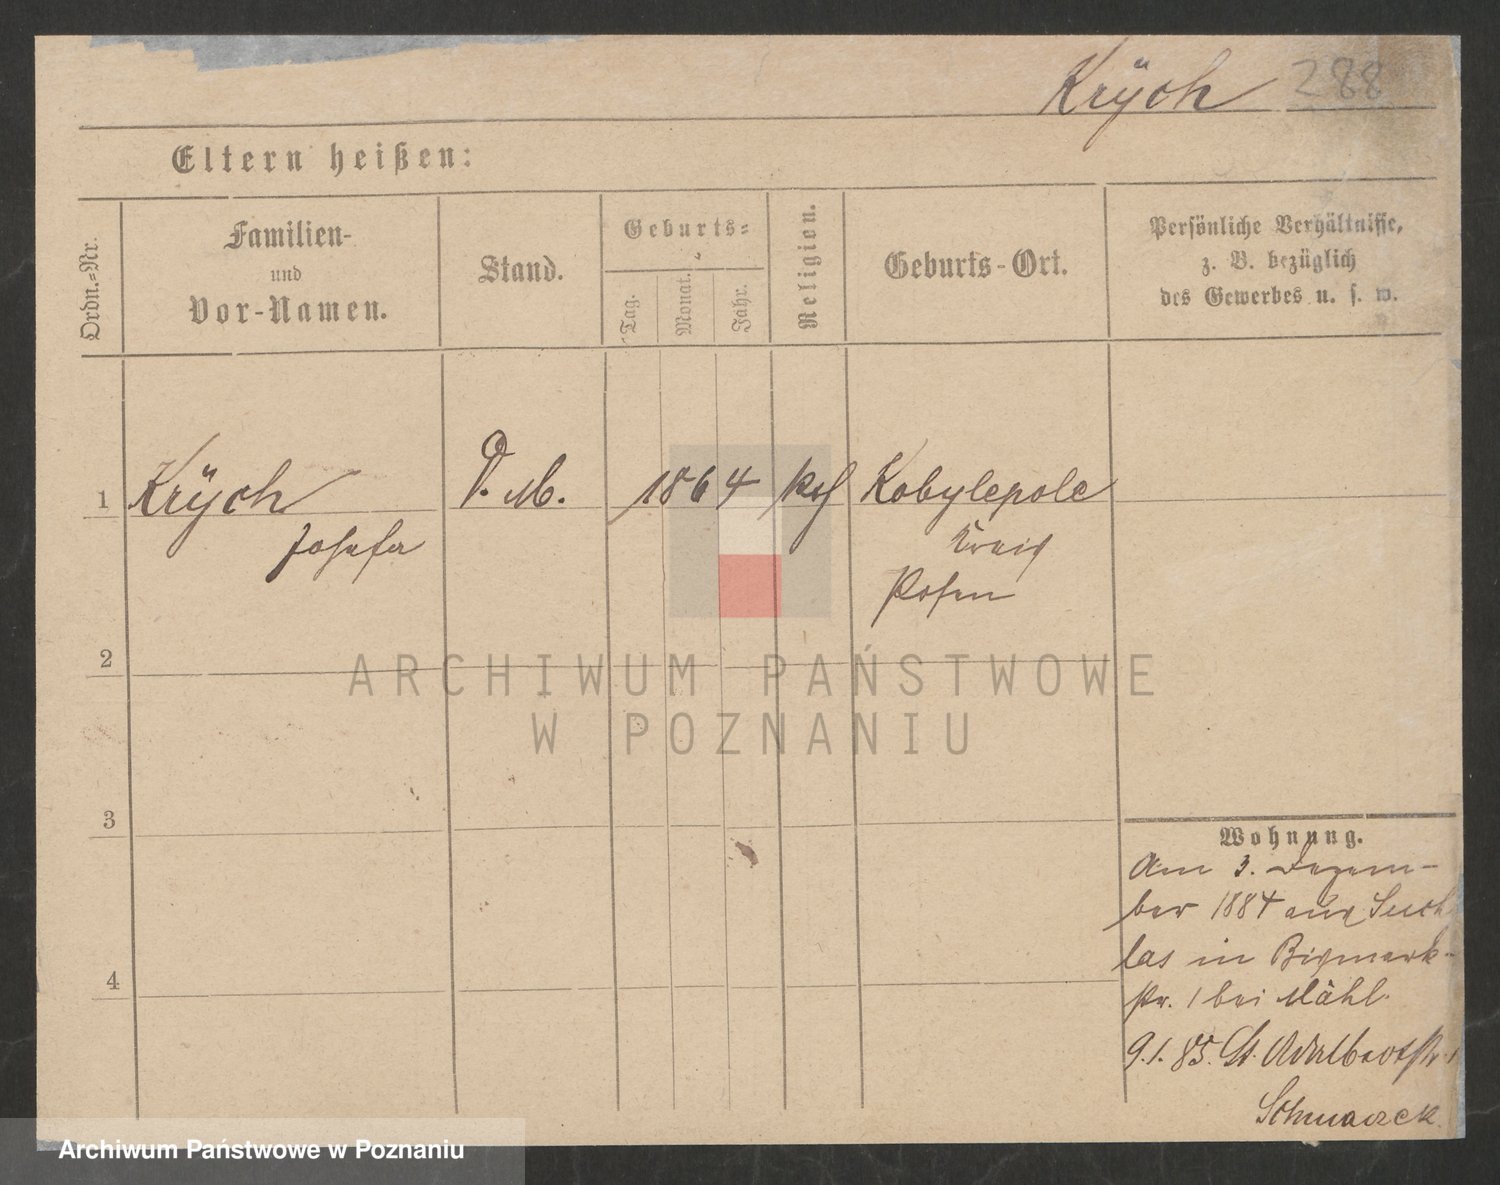 Krÿch 288
Eltern heißen:
Ordn.-Nr.
Familien-
und
Vor-Namen.
Stand.
Geburts-
Tag.
Monat.
Jahr.
Religion.
Geburts-Ort.
Persönliche Verhältnisse,
z. B. bezüglich
des Gewerbes u. s. w.
1 Krÿch D. M. 1864 kath Kobylepole
Josefa Kreis
Posen
2
ARCHIWUM PAŃSTWOWE
W POZNANIU
3
Wohnung.
Am 3. Dezem-
ber 1884 aus Such
las in Bismark-
str. 1 bei Mähl.
4
9.1.85. St. Adalbertstr. 1
Archiwum Państwowe w Poznaniu